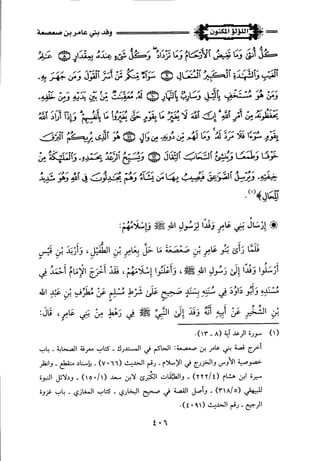 اللؤلؤ المكنون
وفد بني عامر بن صعصعة
كُلُّ أُنثَىٰ وَمَا تَغِيضُ الْأَرْحَامُ وَمَا تَزْدَادُ وَكُلُّ شَيْءٍ عِندَهُ بِمِقْدَارٍ عَالِمُ
الْغَيْبِ وَالشَّهَادَةِ الْكَبِيرُ الْمُتَعَالِ سَوَاءٌ مِّنكُم مَّنْ أَسَرَّ الْقَوْلَ وَمَن جَهَرَ بِهِ
وَمَنْ هُوَ مُسْتَخْفٍ بِاللَّيْلِ وَسَارِبٌ بِالنَّهَارِ لَهُ مُعَقِّبَاتٌ مِّن بَيْنِ يَدَيْهِ وَمِنْ خَلْفِهِ
يَحْفَظُونَهُ مِنْ أَمْرِ اللَّهِ إِنَّ اللَّهَ لَا يُغَيِّرُ مَا بِقَوْمٍ حَتَّىٰ يُغَيِّرُوا مَا بِأَنفُسِهِمْ وَإِذَا أَرَادَ اللَّهُ
بِقَوْمٍ سُوءًا فَلَا مَرَدَّ لَهُ وَمَا لَهُم مِّن دُونِهِ مِن وَالٍ هُوَ الَّذِي يُرِيكُمُ الْبَرْقَ
خَوْفًا وَطَمَعًا وَيُنشِئُ السَّحَابَ الثِّقَالَ وَيُسَبِّحُ الرَّعْدُ بِحَمْدِهِ وَالْمَلَائِكَةُ مِنْ
خِيفَتِهِ وَيُرْسِلُ الصَّوَاعِقَ فَيُصِيبُ بِهَا مَن يَشَاءُ وَهُمْ يُجَادِلُونَ فِي اللَّهِ وَهُوَ شَدِيدُ
الْمِحَالِ﴾(١).
إِرْسَالُ بَنِي عَامِرٍ وَفْدًا لِرَسُولِ اللهِ ﷺ وَإِسْلَامُهُمْ:
فَلَمَّا رَأَى بَنُو عَامِرِ بنِ صَعْصَعَةَ مَا حَلَّ بِعَامِرِ بنِ الطُّفَيْلِ، وَأَرْبَدَ بنِ قَيْسٍ
أَرْسَلُوا وَفْدًا إِلَى رَسُولِ اللهِ ﷺ، وَأَعْلَنُوا إِسْلَامَهُمْ، فَقَدْ أَخْرَجَ الْإِمَامُ أَحْمَدُ فِي
مُسْنَدِهِ وَأَبُو دَاوُدَ فِي سُنَنِهِ بِسَنَدٍ صَحِيحٍ عَلَى شَرْطِ مُسْلِمٍ عَنْ مُطَرِّفِ بنِ عَبْدِ اللهِ
بنِ الشِّخِّيرِ عَنْ أَبِيهِ أَنَّهُ وَفَدَ إِلَى النَّبِيِّ ﷺ فِي رَهْطٍ مِنْ بَنِي عَامِرٍ، قَالَ:
(١) سورة الرعد آية (٨ - ١٣).
أخرج قصة بني عامر بن صعصعة: الحاكم في المستدرك - كتاب معرفة الصحابة - باب
خصوصية الأوس والخزرج في الإسلام - رقم الحديث (٧٠٦٦) - بإسناد منقطع - وانظر
سيرة ابن هشام (٢٢٢/٤) - والطبقات الكبرى لابن سعد (١٥٠/١) - ودلائل النبوة
للبيهقي (٣١٨/٥) - وأصل القصة في صحيح البخاري - كتاب المغازي - باب غزوة
الرجيع - رقم الحديث (٤٠٩١).
٤٠٦